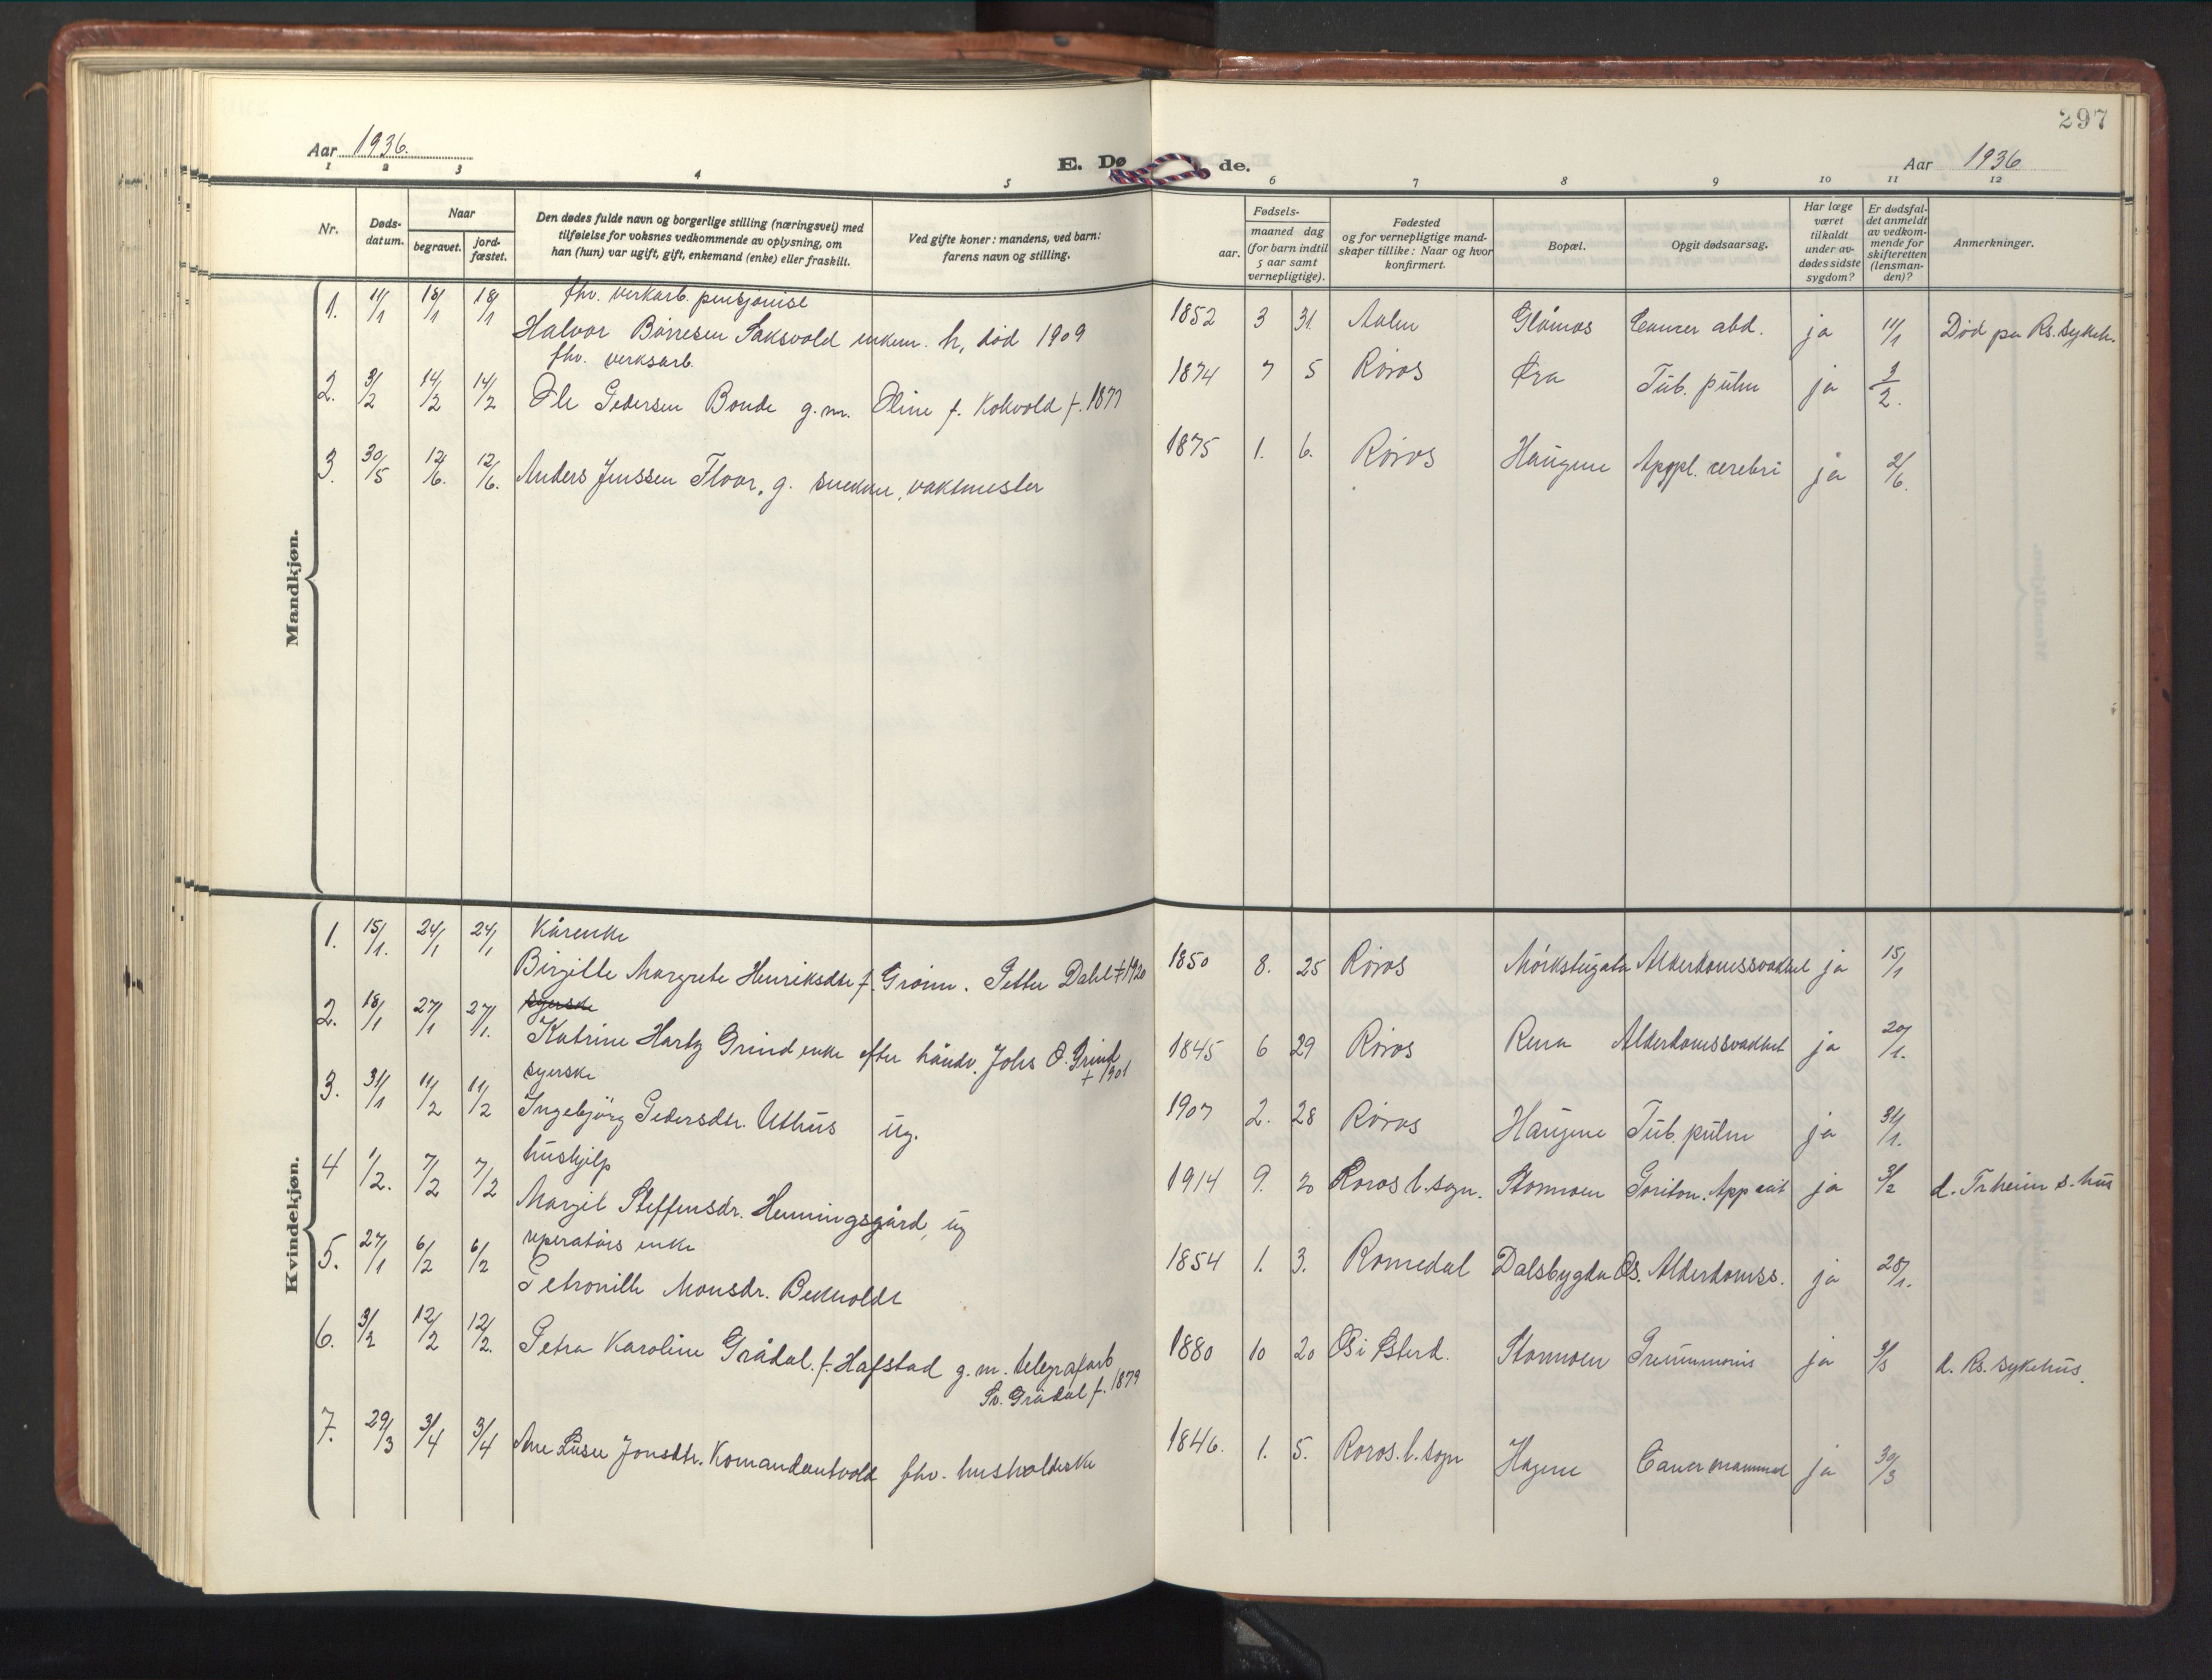 297
Aar 1936.
E. Dø de.
Aar 1936
1 2 3 4 5 6 7 8 9 10 11 12
Nr.
Døds-
datum.
Naar
begravet.
jord-
fæstet.
Den dødes fulde navn og borgerlige stilling (næringsvei) med
tilføielse for voksnes vedkommende av oplysning, om
han (hun) var ugift, gift, enkemand (enke) eller fraskilt.
Ved gifte koner: mandens, ved barn:
farens navn og stilling.
Fødsels-
aar.
maaned dag
(for barn indtil
5 aar samt
vernepligtige).
Fødested
og for vernepligtige mand-
skaper tillike: Naar og hvor
konfirmert.
Bopæl.
Opgit dødsaarsag.
Har læge
været
tilkaldt
under av-
dødes sidste
sygdom?
Er dødsfal-
det anmeldt
av vedkom-
mende for
skifteretten
(lensman-
den)?
Anmerkninger.
Mandkjøn.
fhv. verkarb. pensjonist
1. 11/1 18/1 18/1 Halvor Børresen Saksvold enkem. h, død 1909 1852 3 31. Aalen Glåmos Cancer abd. ja 11/1 Død på Rs. sykeh.
fhv. verksarb.
2. 3/2 14/2 14/2 Ole Pedersen Bonde g.m. Oline f. Kokvold f. 1877 1874 7 5 Røros Øra Tub. pulm ja 3/2.
3. 30/5 12/6. 12/6. Anders Jenssen Floor, g. snekker, vaktmester 1875 1. 6. Røros Haugene Appopl. cerebri ja 2/6.
Kvindekjøn.
Kårenke
1. 15/1. 24/1 24/1 Birgitte Margrete Henriksdtr f. Grønn. Petter Dahl † 1920 1850 8. 25 Røros Mørkstugata Alderdomssvakhet ja 15/1
syerske
2. 18/1 27/1 27/1. Katrine Hartz Grind enke efter håndv. Johs O. Grind † 1901 1845 6 29 Røros Rena Alderdomssvakhet ja 20/1.
syerske
3. 31/1 11/2 11/2 Ingebjörg Pedersdtr. Uthus ug. 1907 2. 28 Røros Haugene Tub. pulm ja 31/1.
hushjelp
4 1/2. 7/2 7/2 Margit Steffensdr. Henningsgård, ug 1914 9. 20 Røros l. sogn. Stormoen Periton. App. ja 3/2 d. Trheim s. hus
reparatørs enke
5. 27/1 6/2 6/2 Petronille Monsdr. Bekholdt 1854 1. 3. Romedal Dalsbygda Os. Alderdomss. ja 28/1.
6. 3/2 12/2 12/2. Petra Karoline Grådal. f. Hafstad g. m. telegrafarb
Sv. Grådal f. 1879 1880 10 20 Os i Østerd. Stormoen Pneumonis ja 3/3 d. Rs. sykehus.
7. 29/3 3/4 3/4 Ane Luse Jonsdtr. Komandantvold fhv. husholderske 1846. 1. 5. Røros. l. sogn Hagene Cancer mammal ja 30/3